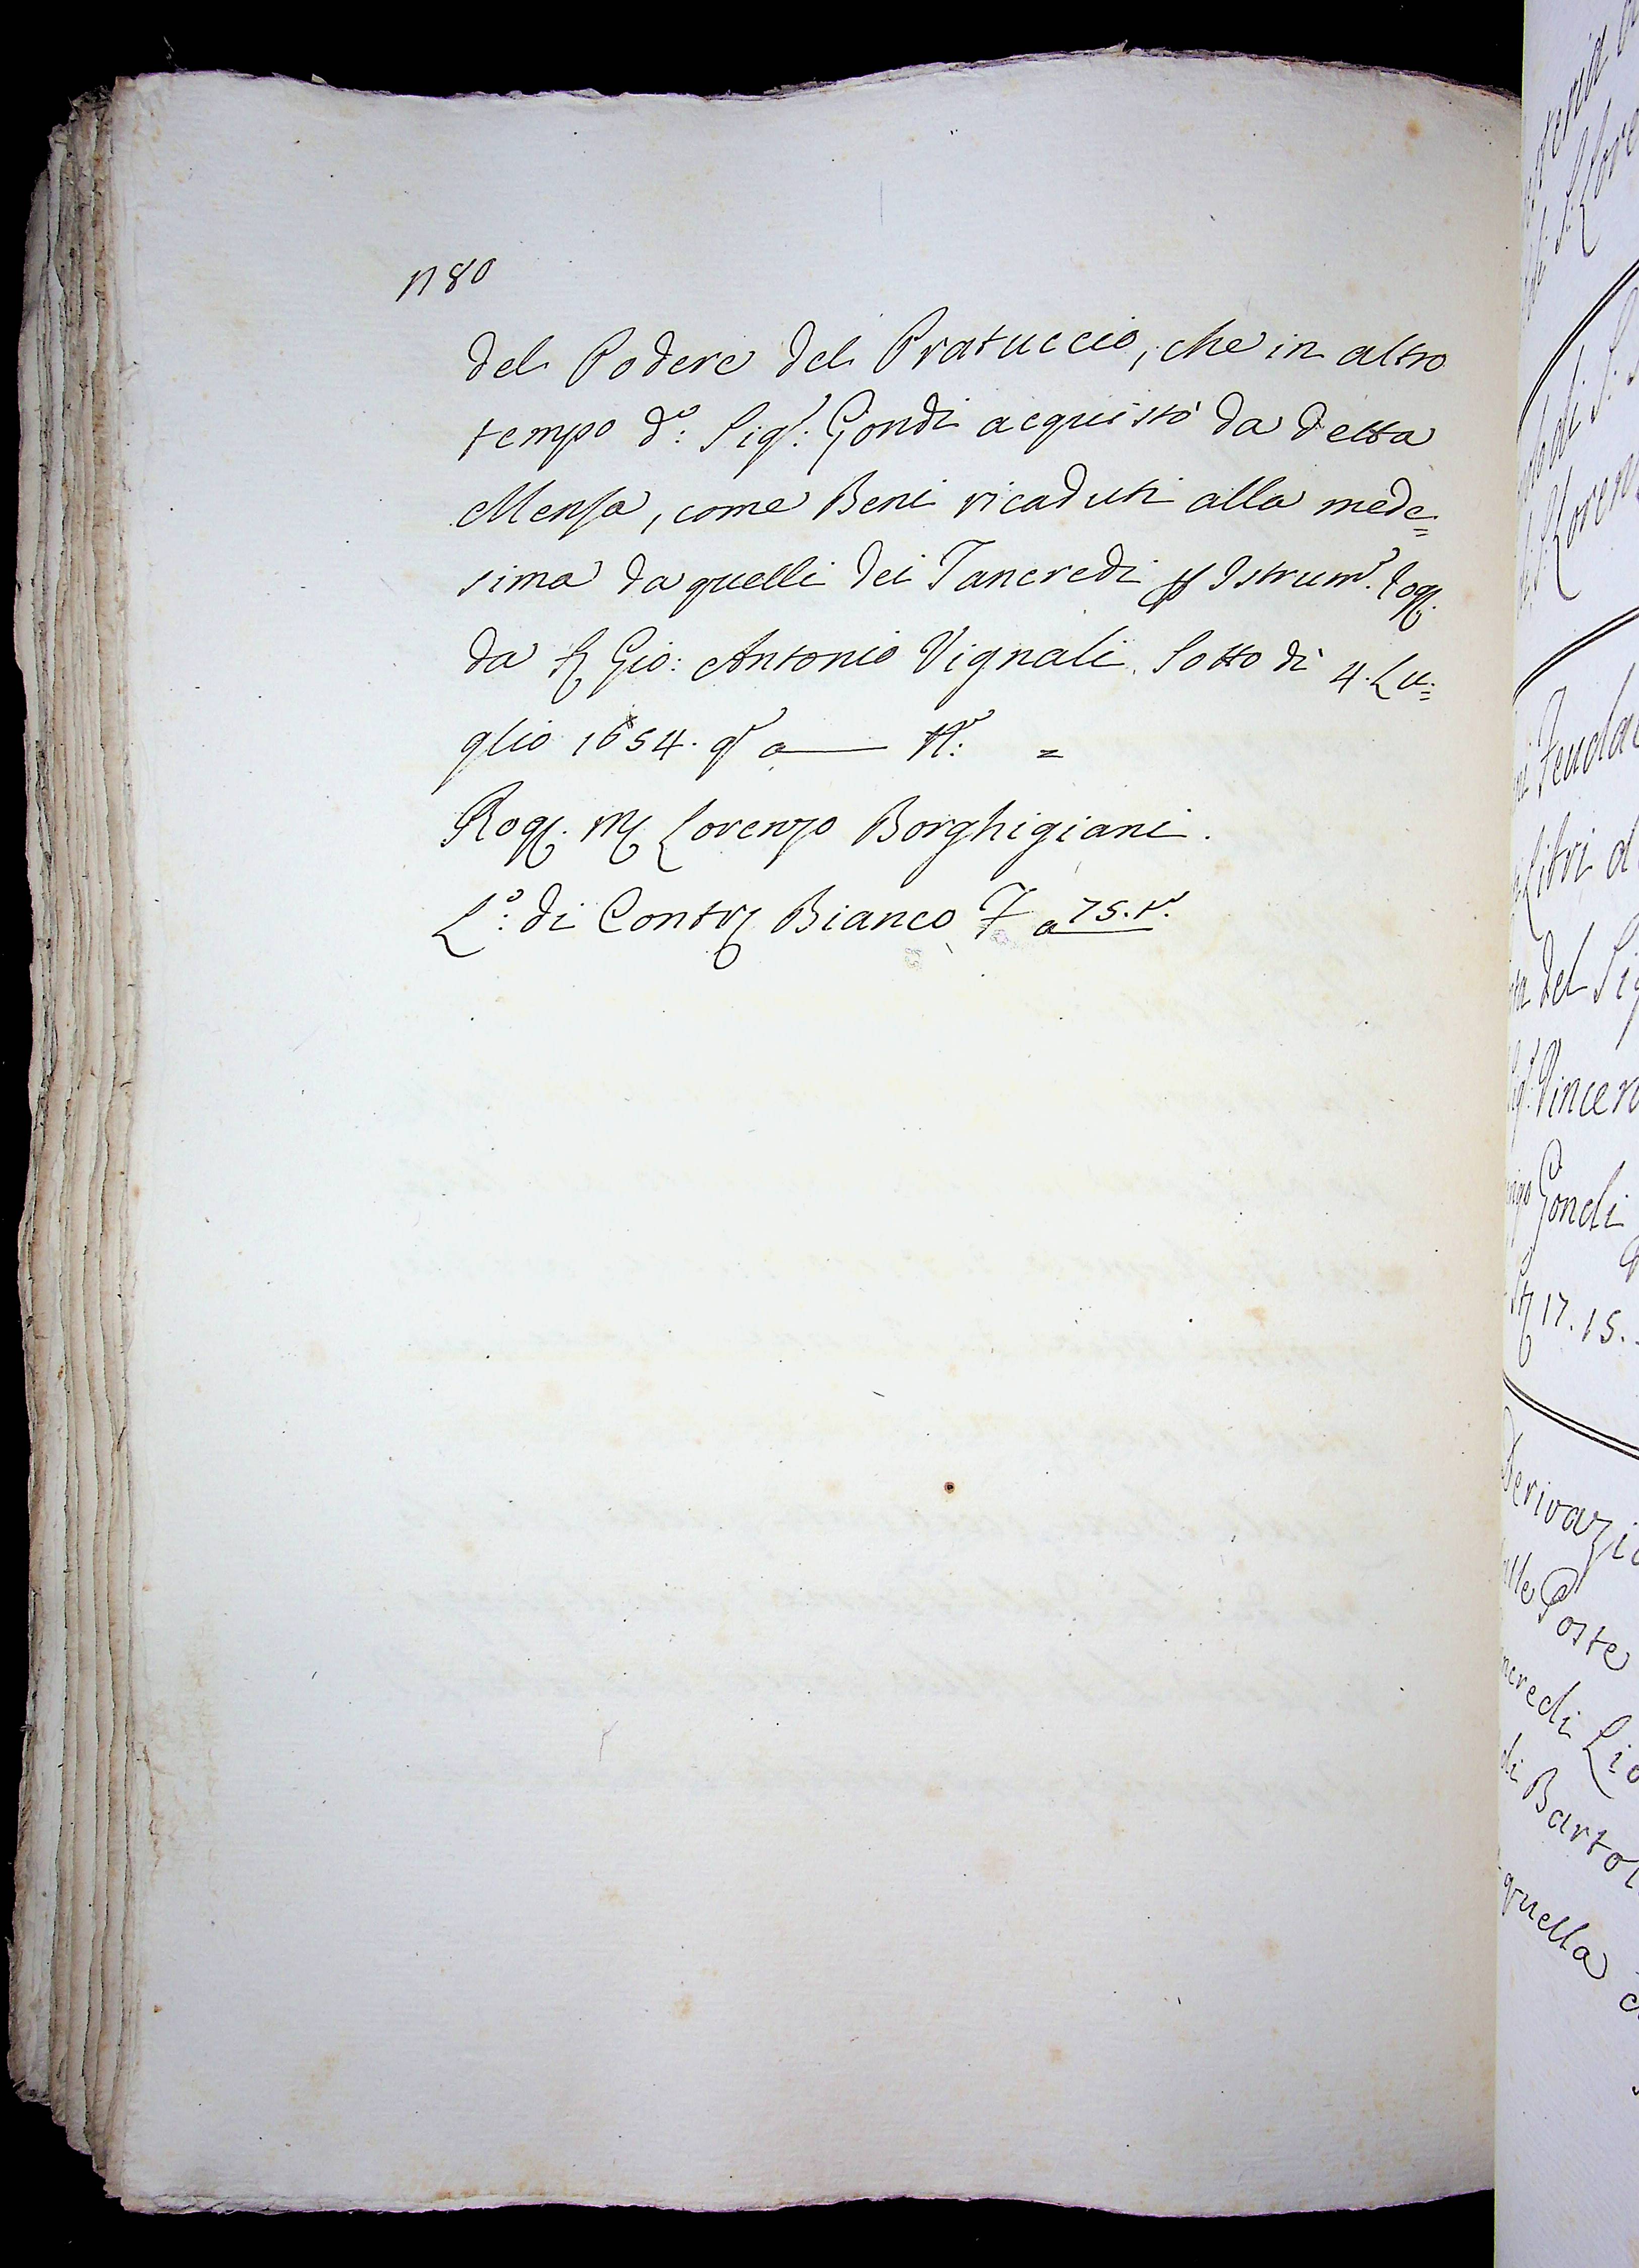 n 80
del Podere del Pratuccio, che in altro
tempo d.º: Sig.r: Gondi acquistò da detta
Mensa, come Beni ricaduti alla mede=
sima da quelli dei Tancredi p Istrum.º. Rog.
da S Gio: Antonio Vignali. Sotto dì 4. Lu=
glio 1654. q.º a —— N.º: =
Rog. M Lorenzo Borghigiani.
L.º: di Contr Bianco F a 75. t.º.
Feudal
Libri
del Sig
Sig.r: Vincen
Gondi
17. 15.
Derivazi
alle Poste
ncredi Lio
di Barto
quella